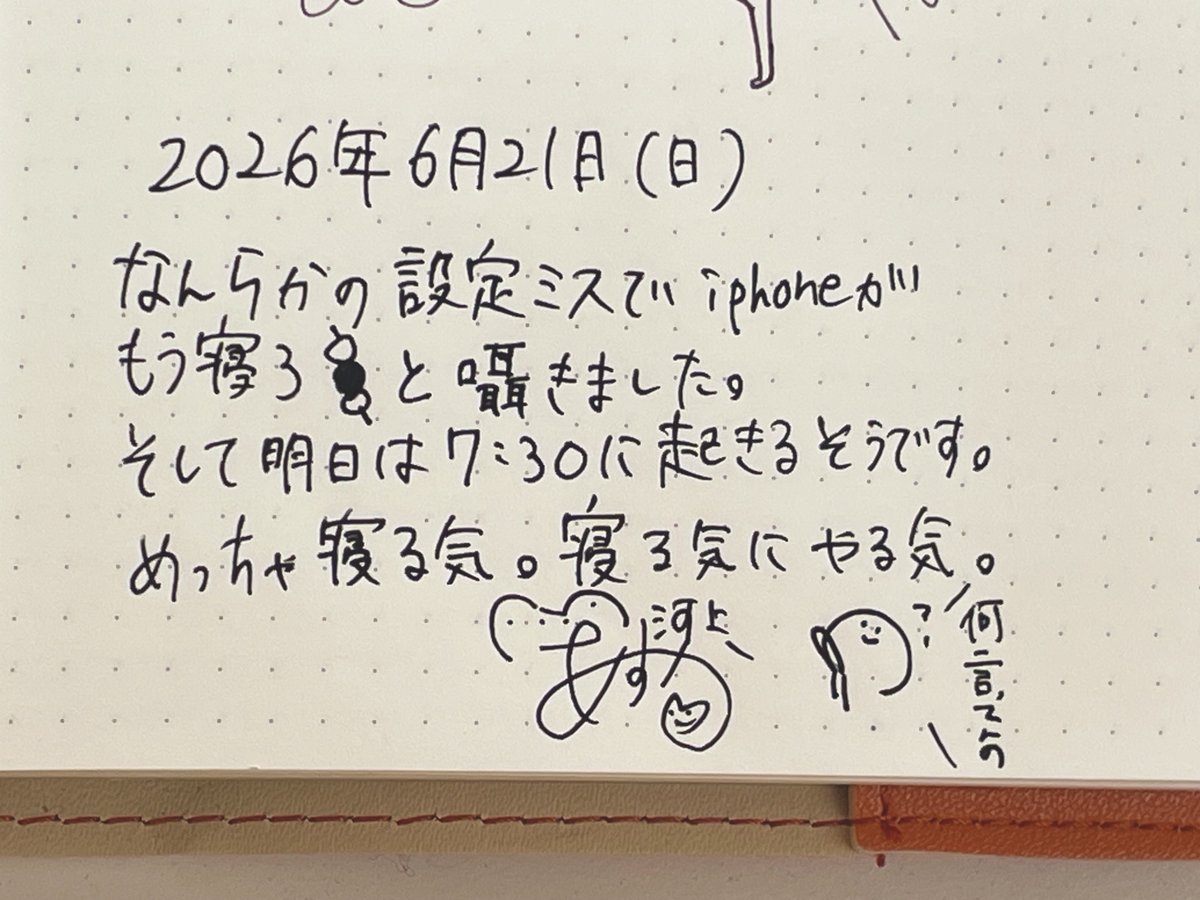 2026年6月21日(日)
なんらかの設定ミスでiphoneが
もう寝ろと囁きました。
そして明日は7:30に起きるそうです。
めっちゃ寝る気。寝る気にやる気。
河上
あす
?
何言ってんの